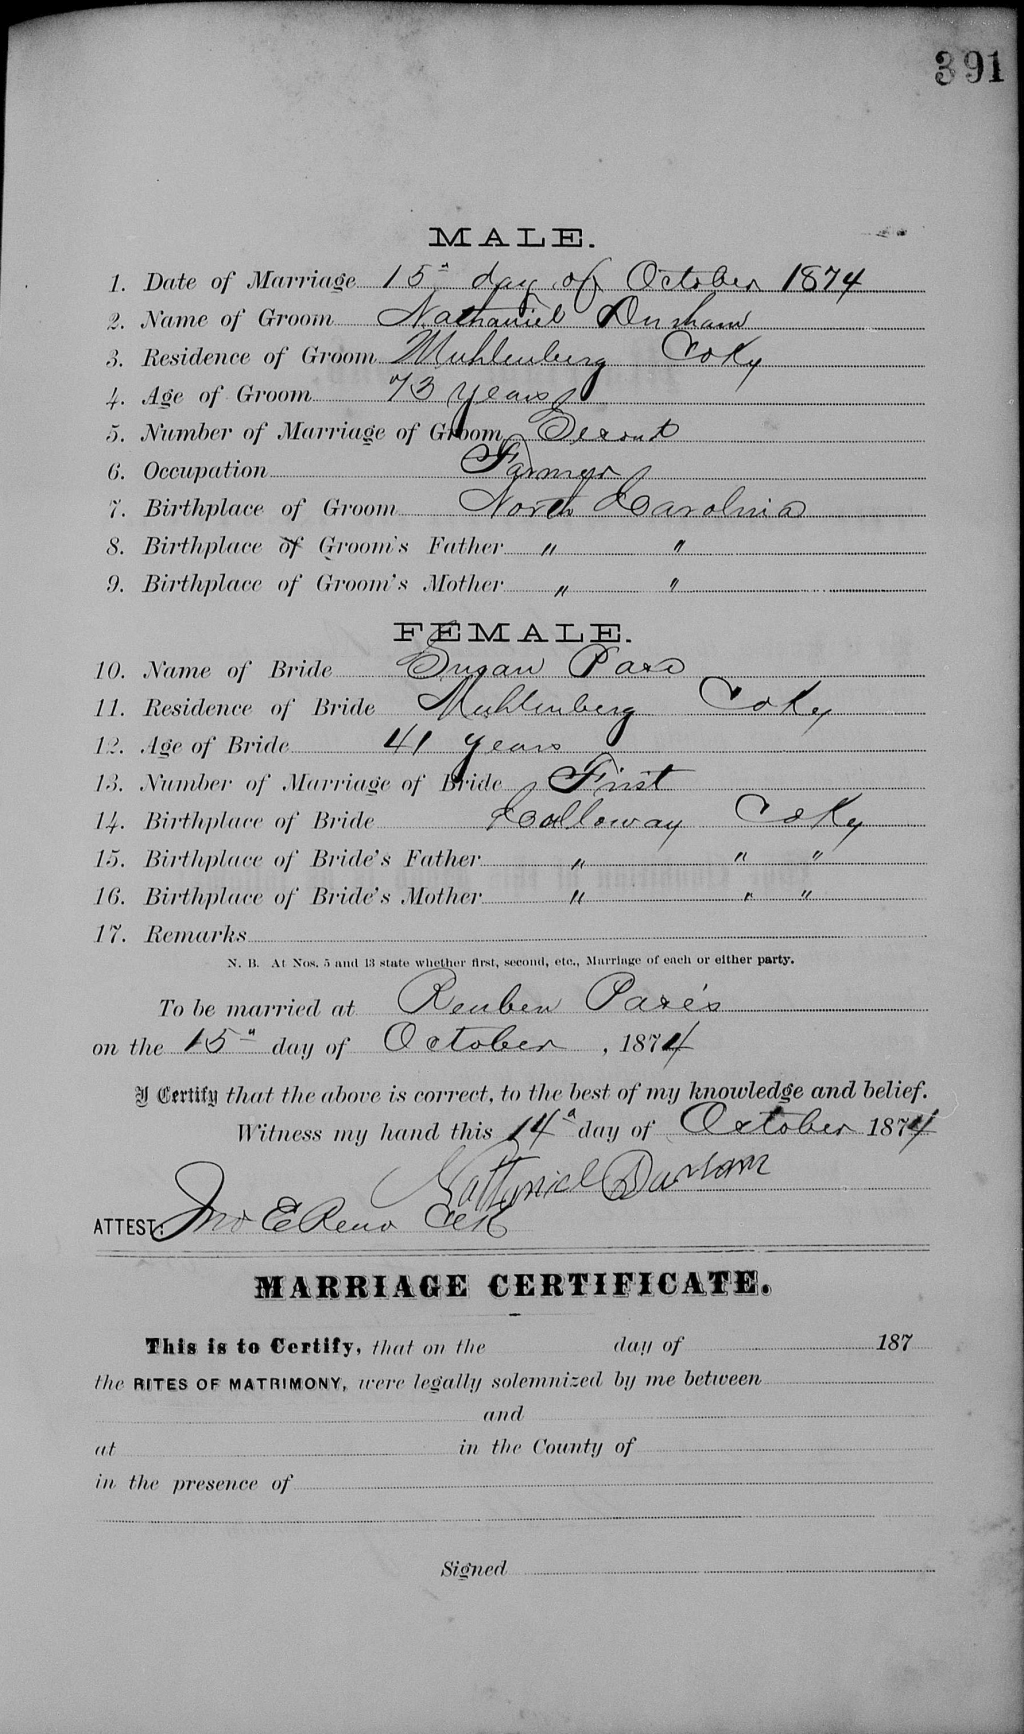 391
MALE.
1. Date of Marriage 15" day of October 1874
2. Name of Groom Nathaniel Durham
3. Residence of Groom Muhlenberg Co Ky
4. Age of Groom 73 years
5. Number of Marriage of Groom Second
6. Occupation Farmer
7. Birthplace of Groom North Carolina
8. Birthplace of Groom's Father " "
9. Birthplace of Groom's Mother " "
FEMALE.
10. Name of Bride Susan Pace
11. Residence of Bride Muhlenberg Co Ky
12. Age of Bride 41 years
13. Number of Marriage of Bride First
14. Birthplace of Bride Calloway Co Ky
15. Birthplace of Bride's Father " " "
16. Birthplace of Bride's Mother " " "
17. Remarks
N. B. At Nos. 5 and 13 state whether first, second, etc., Marriage of each or either party.
To be married at Reuben Pace's
on the 15" day of October, 1874
I Certify that the above is correct, to the best of my knowledge and belief.
Witness my hand this 14" day of October 1874
Nathaniel Durham
ATTEST: Jno E Reno Clk
MARRIAGE CERTIFICATE.
This is to Certify, that on the day of 187
the RITES OF MATRIMONY, were legally solemnized by me between
and
at in the County of
in the presence of
Signed